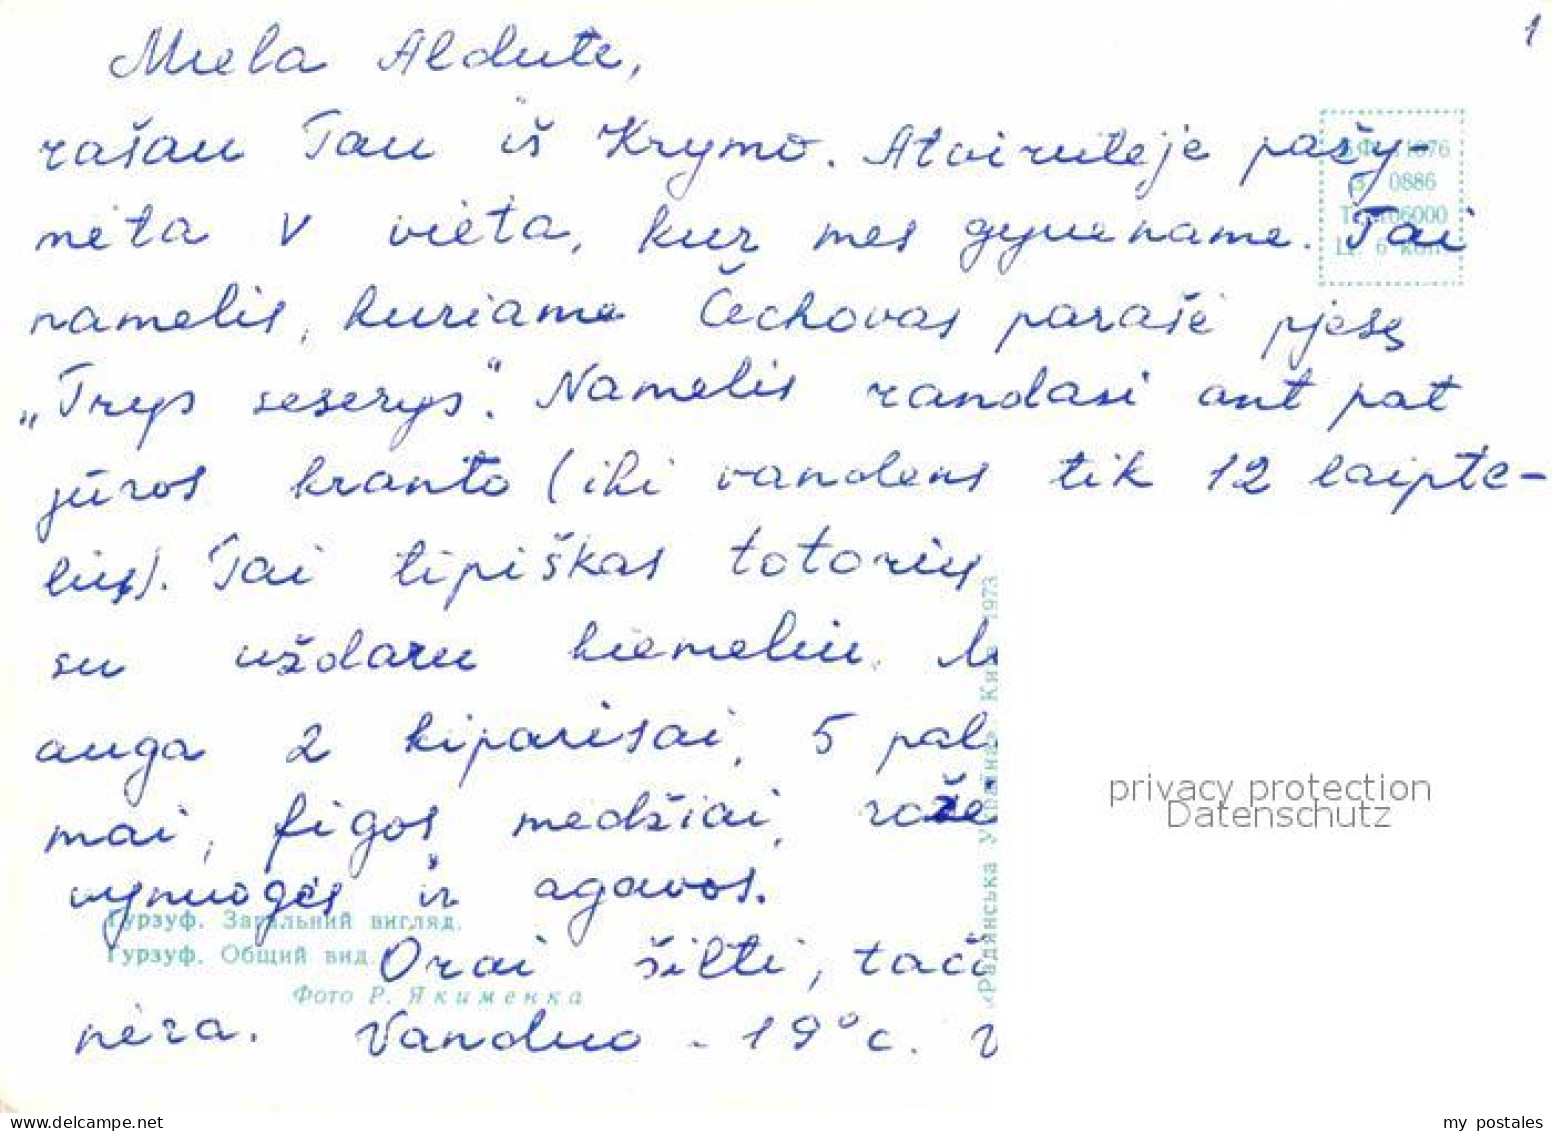 1
Miela Aldute,
rašau Tau iš Krymo. Atvirutėje pašy-
mėta V vieta, kur mes gyvename. Tai
namelis, kuriame Čechovas parašė pjesę
„Trys seserys“. Namelis randasi ant pat
jūros kranto (iki vandens tik 12 laipte-
lių). Tai tipiškas totorių
su uždaru kiemeliu.
auga 2 kiparisai, 5 pal
mai, figos medžiai, rože
vynuogės ir agavos.
Orai šilti, tači
nėra. Vanduo - 19°c. V
0886
6 коп.
Гурзуф. Загальний вигляд.
Гурзуф. Общий вид.
Фото Р. Якименка
«Радянська Україна». Київ 1973
privacy protection
Datenschutz
www.delcampe.net
my postales